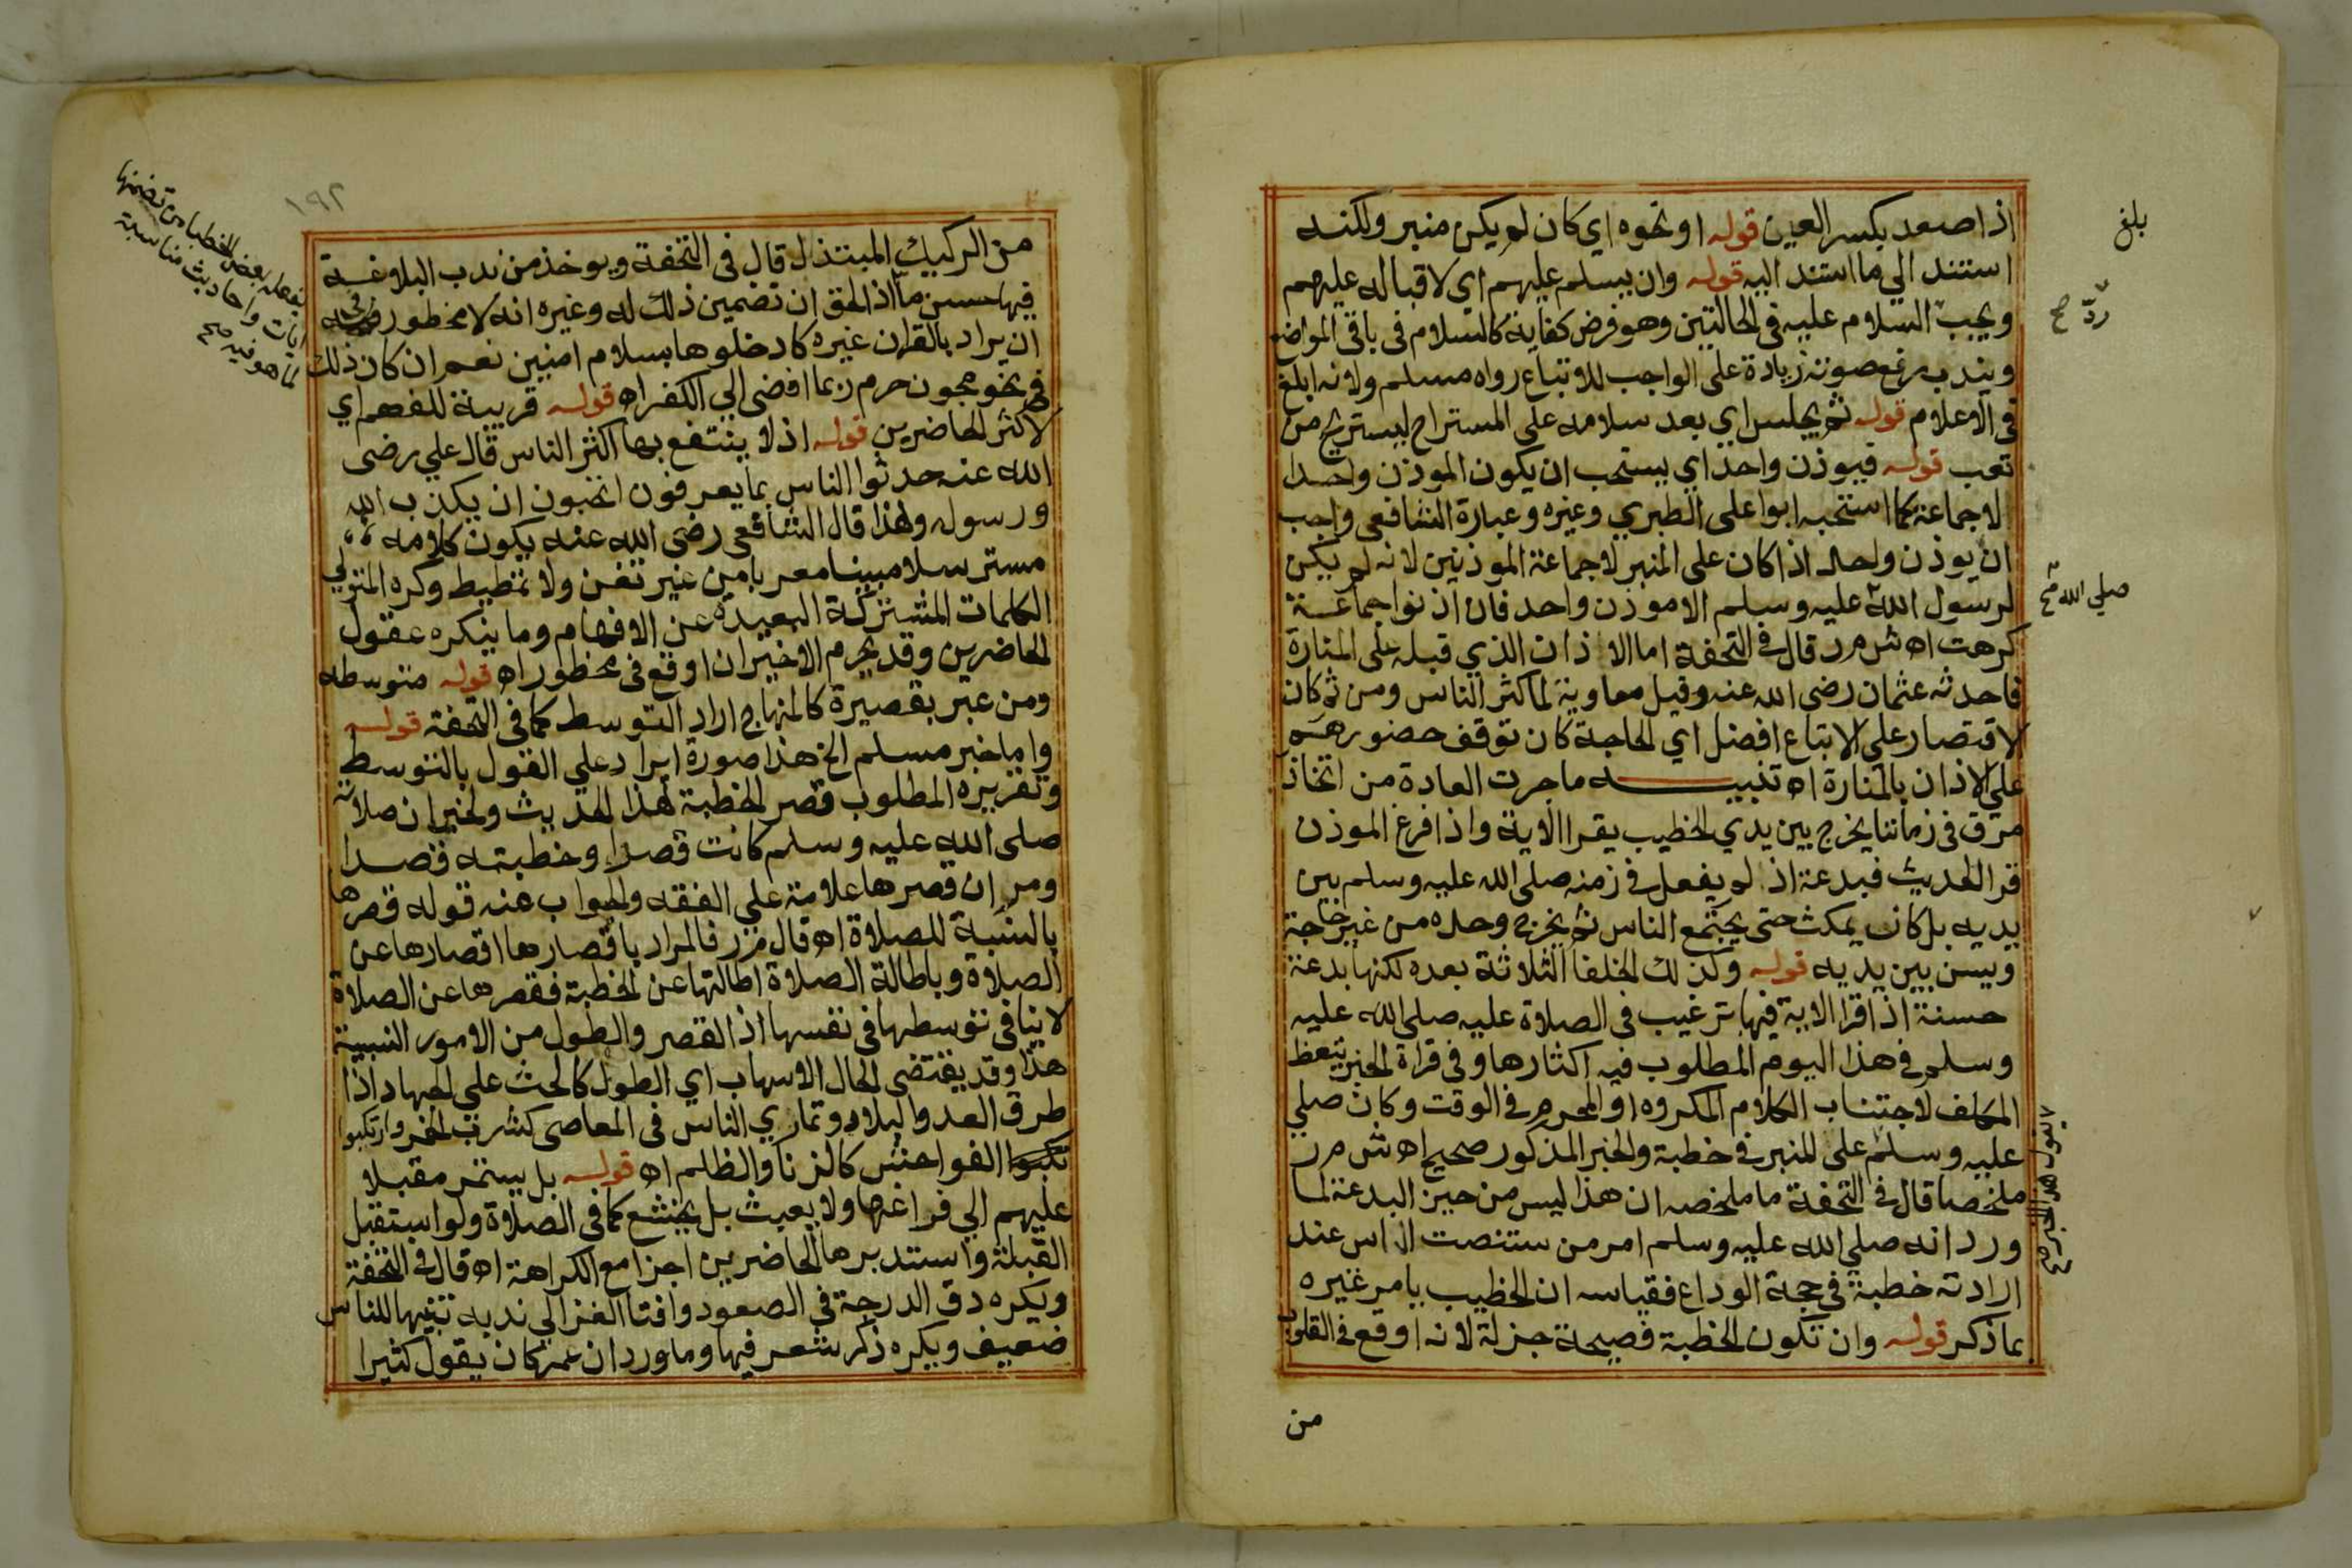 اذا صعد بكسر العين قوله او نحوه اي كان لم يكن منبر ولكنه
استند الي ما استند اليه قوله وان يسلم عليهم اي لاقباله عليهم
ويجب السلام عليه في الحالتين وهو فرض كفاية كالسلام في باقي المواضع
ويندب رفع صوته زيادة على الواجب للاتباع رواه مسلم ولانه ابلغ
في الاعلام قوله ثم يجلس اي بعد سلامه على المستراح ليستريح من
تعب قوله فيوذن واحد اي يستحب ان يكون الموذن واحدا
لا جماعة كما استحبه ابوا على الطبري وغيره وعبارة الشافعى واحب
ان يوذن واحد اذا كان على المنبر لا جماعة الموذنين لانه لم يكن
لرسول الله عليه وسلم الا موذن واحد فان اذنوا جماعة
كرهت اه ش م ر قال في التحفة اما الاذان الذي قبله على المنارة
فاحدثه عثمان رضي الله عنه وقيل معاوية لما كثر الناس ومن ثم كان
الاقتصار على الاتباع افضل اي لحاجة كان توقف حضورهم
على الاذان بالمنارة اه تنبيه ما جرت العادة من اتخاذ
مرق في زماننا يخرج بين يدي الخطيب يقرا الاية واذا فرغ الموذن
قرا الحديث فبدعة اذ لم يفعل في زمنه صلى الله عليه وسلم بين
يديه بل كان يمكث حتى يجتمع الناس ثم يخرج وحده من غير حاجة
ويسن بين يديه قوله وكذلك الخلفا الثلاثة بعده لكنها بدعة
حسنة اذا قرا الاية فيها ترغيب في الصلاة عليه صلى الله عليه
وسلم في هذا اليوم المطلوب فيه اكثارها وفي قراة الخبر تيعظ
المكلف لاجتناب الكلام المكروه او المحرم في الوقت وكان صلي
عليه وسلم على المنبر في خطبة والخبر المذكور صحيح اه ش م ر
ملخصا قال في التحفة ما ملخصه ان هذا ليس من حيز البدعة لما
ورد انه صلي الله عليه وسلم امر من ستنصت الناس عند
ارادته خطبة في حجة الوداع فقياسه ان الخطيب يامر غيره
بما ذكر قوله وان تكون الخطبة فصيحة جزلة لانه اوقع في القلوب
من
بلغ
ردّ صح
صلي الله صح
يقول هذا الخبر صح
١٩٢
من الركيك المبتذل قال في التحفة ويوخذ من ندب البلاغة
فيها حسن ما اذ الحق ان تضمين ذلك له وغيره انه لا محظور في
ان يراد بالقران غيره كادخلوها بسلام امنين نعم ان كان ذلك
في نحو مجون حرم ربما افضى الي الكفر اه قوله قريبة للفهم اي
لاكثر الحاضرين قوله اذ لا ينتفع بها اكثر الناس قال علي رضى
الله عنه حدثوا الناس بما يعرفون اتحبون ان يكذب الله
ورسوله ولهذا قال الشافعى رضي الله عنه يكون كلامه
مسترسلا مبينا معربا من غير تغن ولا تمطيط وكره المتولي
الكلمات المشتركة البعيدة عن الافهام وما ينكره عقول
الحاضرين وقد يحرم الاخير ان اوقع في محظور اه قوله متوسطه
ومن عبر بقصيرة كالمنهاج اراد التوسط كما في التحفة قوله
واما خبر مسلم الخ هذا صورة ايراد علي القول بالتوسط
وتقريره المطلوب قصر الخطبة لهذا الحديث ولخبر ان صلاته
صلى الله عليه وسلم كانت قصدا وخطبته قصدا
ومر ان قصرها علامة علي الفقه والجواب عنه قوله قصرها
بالنسبة للصلاة اه قال م ر فالمراد باقصارها اقصارها عن
الصلاة وباطالة الصلاة اطالتها عن الخطبة فقصرها عن الصلاة
لا ينافى توسطها في نفسها اذ القصر والطول من الامور النسبية
هذا وقد يقتضى الحال الاسهاب اي الطول كالحث علي الجهاد اذا
طرق العدو البلاد وتماري الناس في المعاصى كشرب الخمر وارتكبوا
تكبوا الفواحش كالزنا والظلم اه قوله بل يستمر مقبلا
عليهم الي فراغها ولا يعبث بل يخشع كما في الصلاة ولو استقبل
القبلة واستدبرها الحاضرين اجزا مع الكراهة اه قال في التحفة
ويكره دق الدرجة في الصعود وافتا الغزالي ندبه تنبيها للناس
ضعيف ويكره ذكر شعر فيها وما ورد ان عمر كان يقول كثيرا
يفعله بعض الخطبا من تضمنها
ايات واحاديث مناسبة
لما هو فيه صح